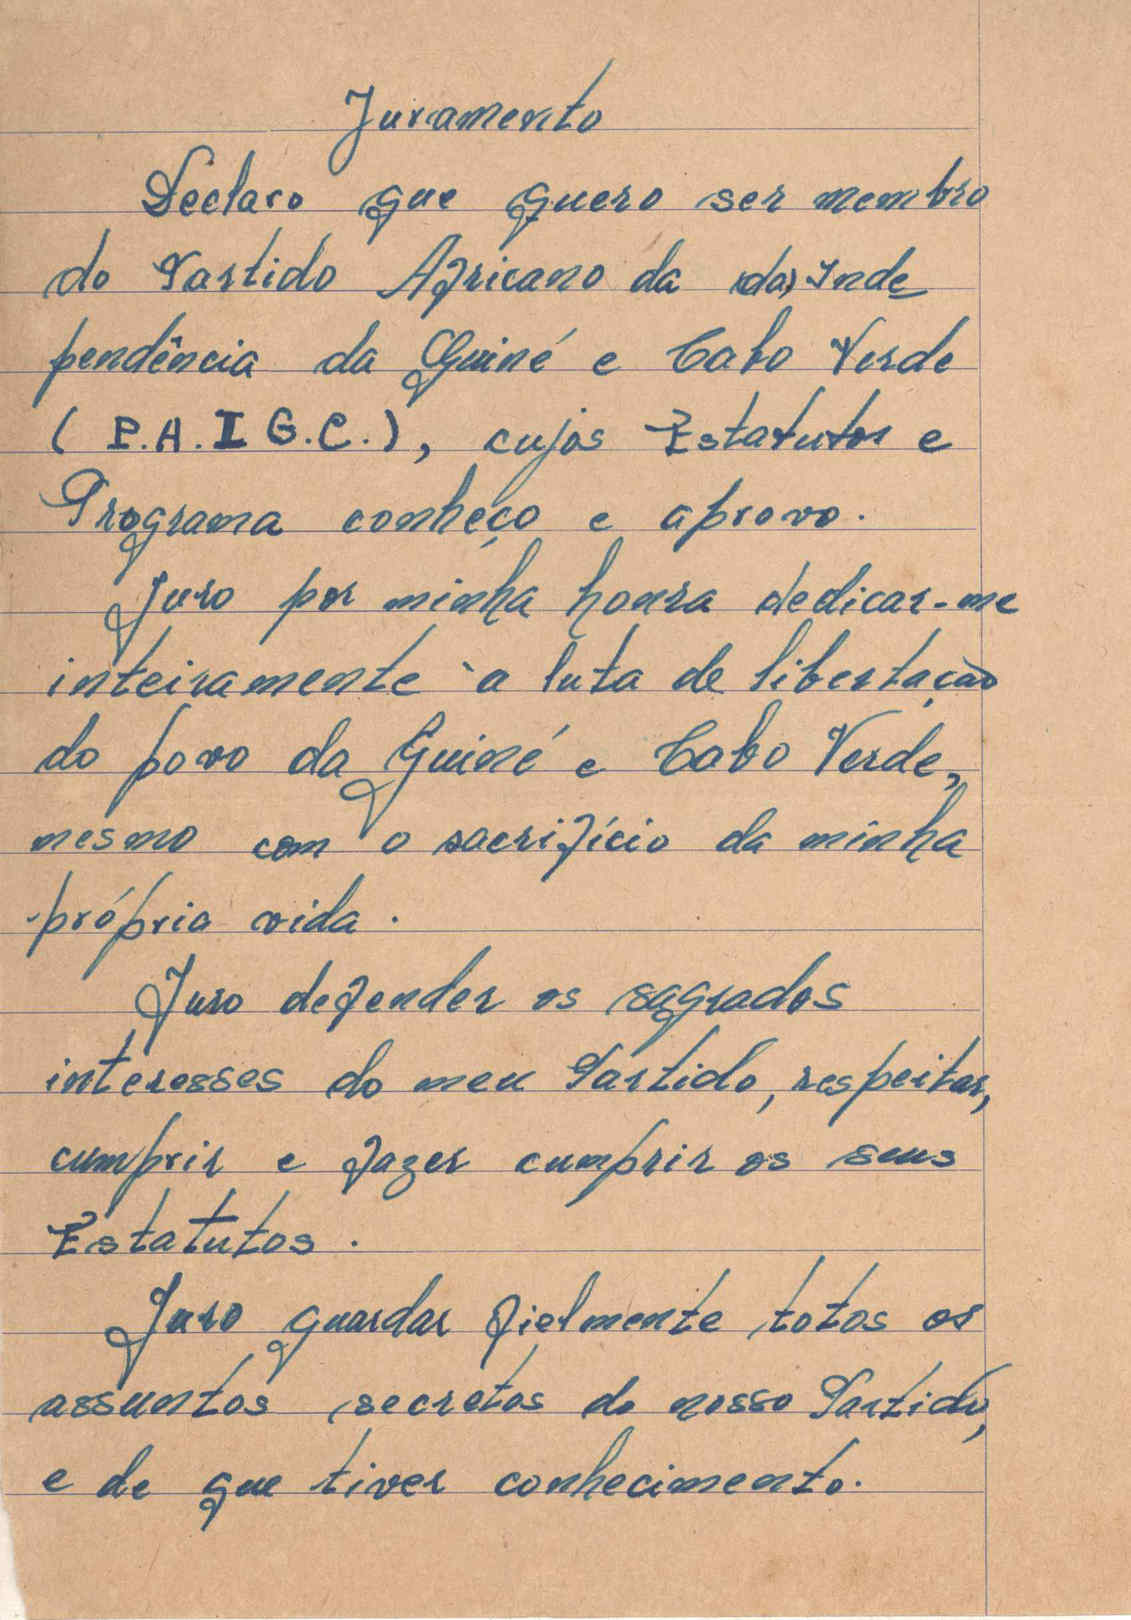 Juramento
Declaro que quero ser membro
do Partido Africano da (da) Inde
pendência da Guiné e Cabo Verde
(P.A.I G.C.), cujos Estatutos e
Programa conheço e aprovo.
Juro por minha honra dedicar-me
inteiramente à luta de libertação
do povo da Guiné e Cabo Verde,
mesmo com o sacrifício da minha
própria vida.
Juro defender os sagrados
interesses do meu Partido, respeitar,
cumprir e fazer cumprir os seus
Estatutos.
Juro guardar fielmente totos os
assuntos secretos do nosso Partido,
e de que tiver conhecimento.